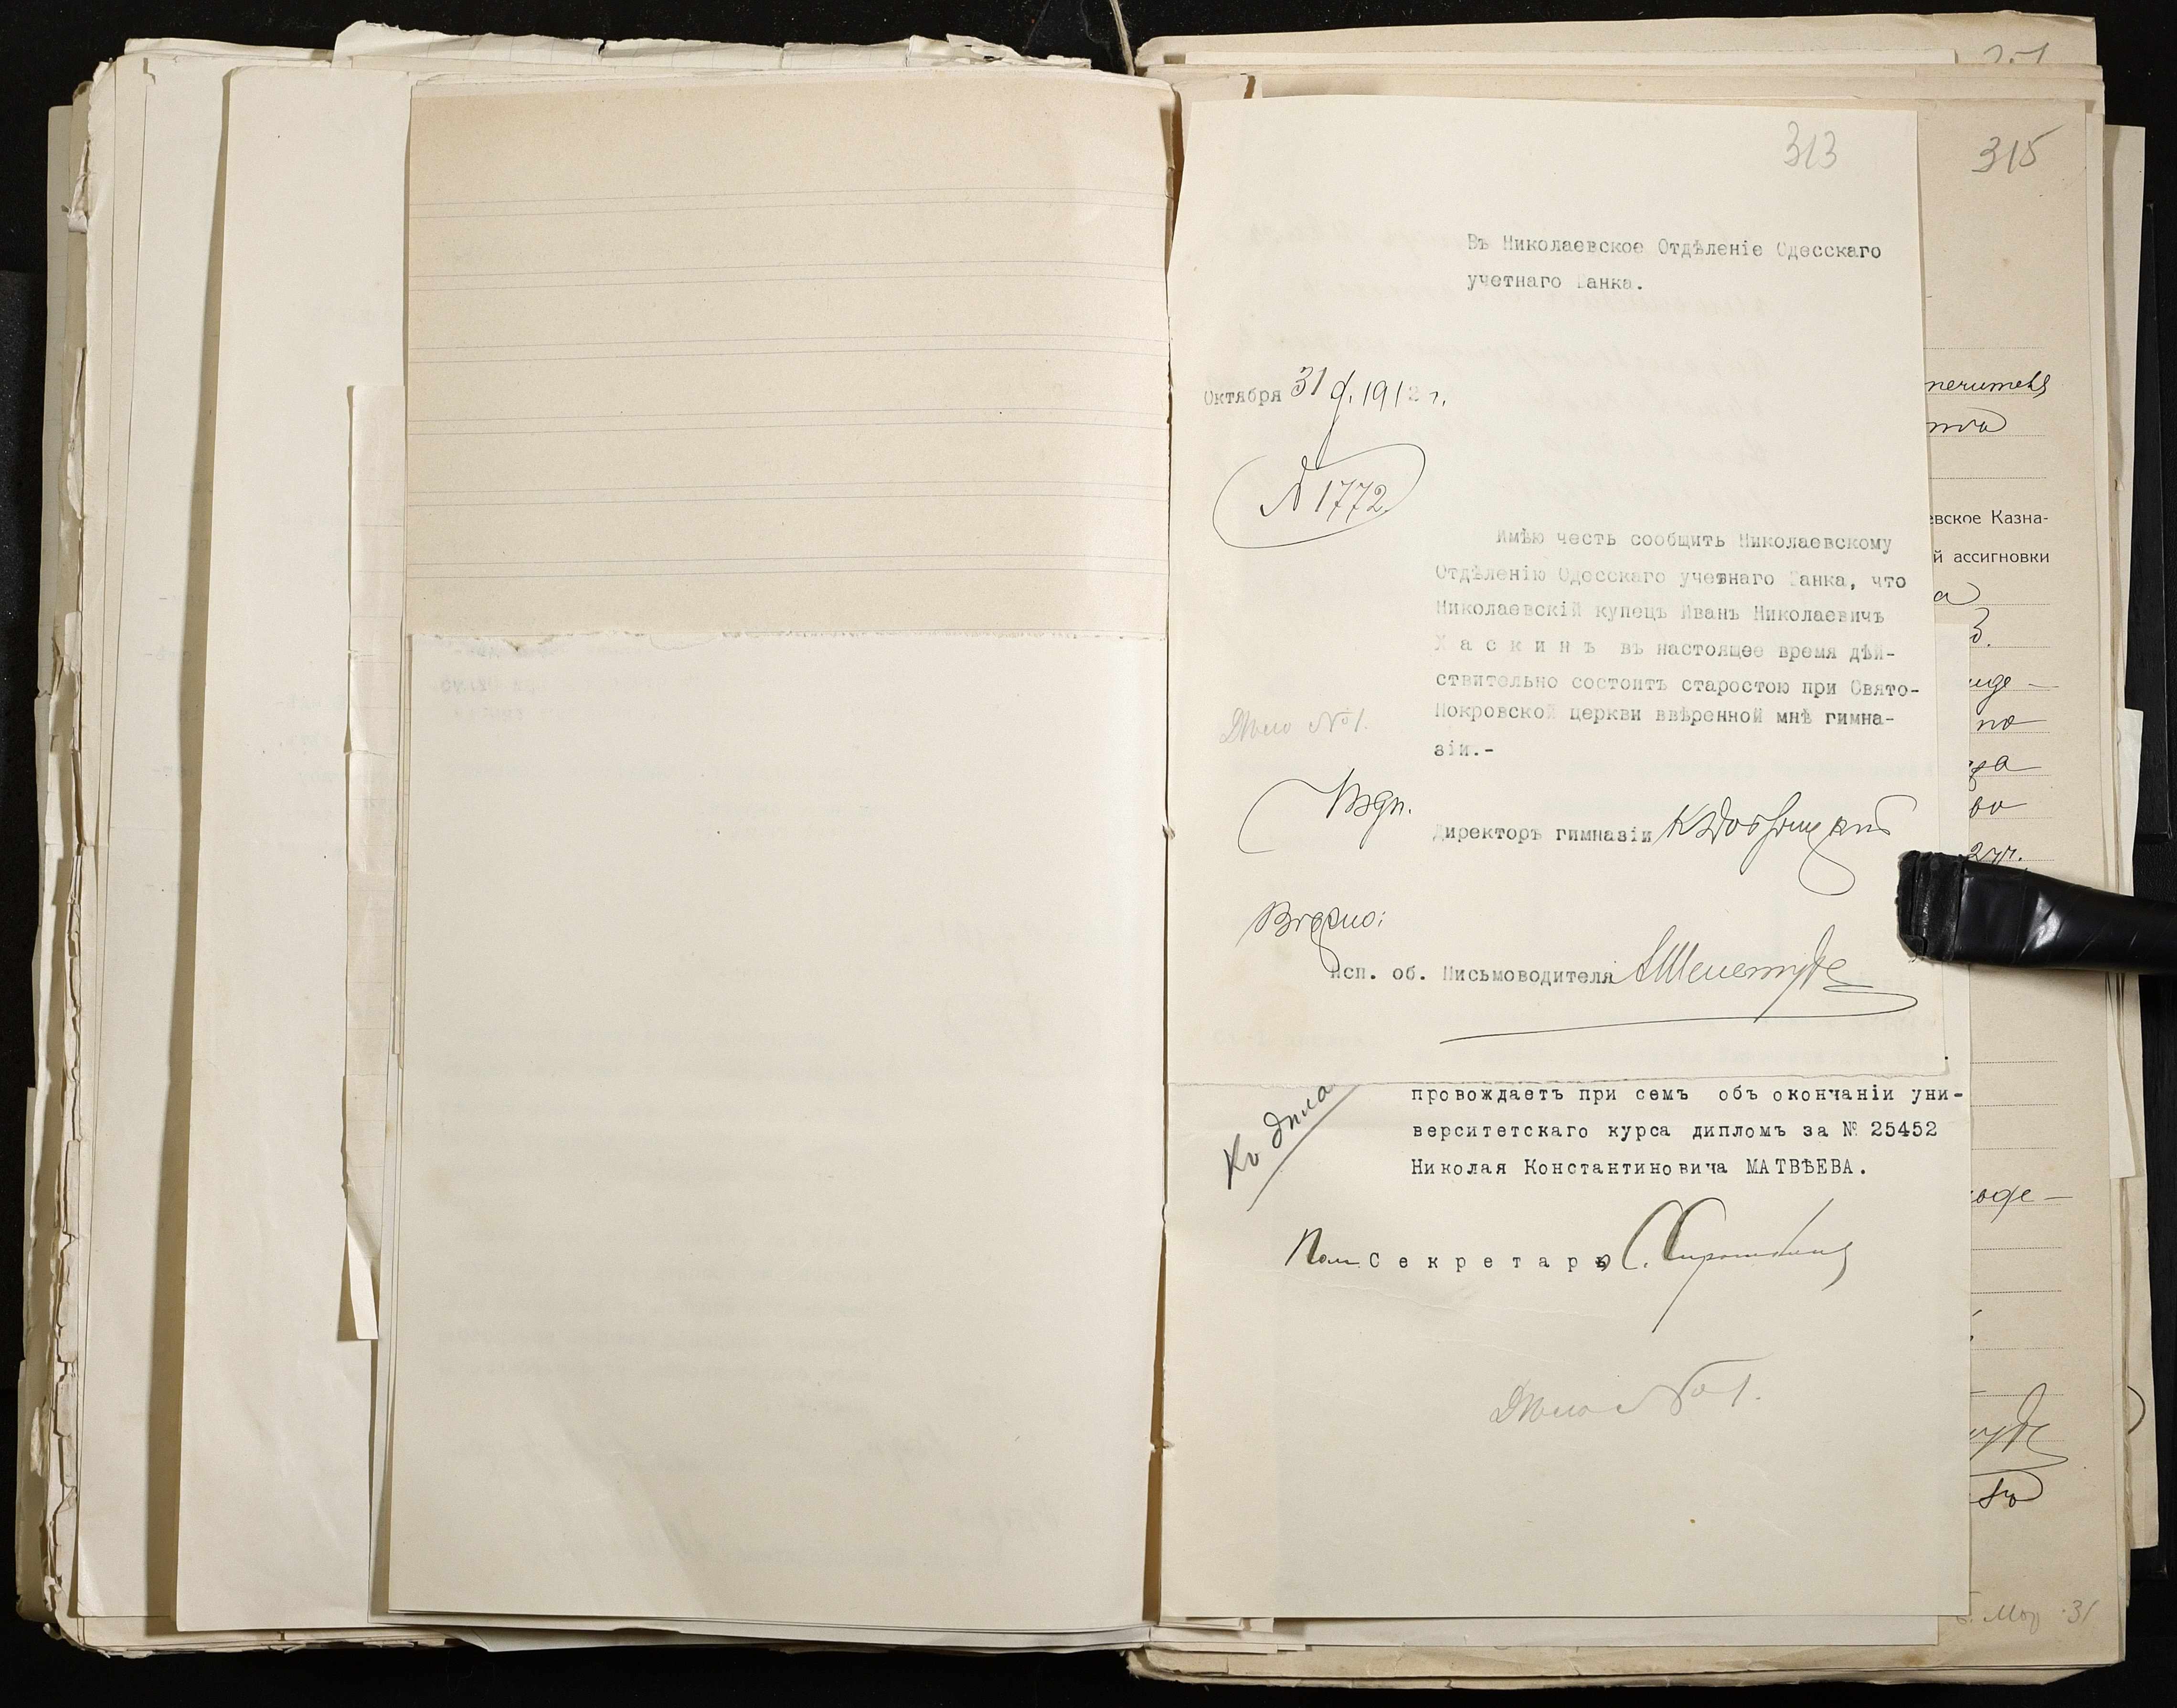 313
315
Въ Николаевское Отдѣленіе Одесскаго
учетнаго Банка.
Октября 31 д. 1912 г.
№ 1772.
Имѣю честь сообщить Николаевскому
Отдѣленію Одесскаго учетнаго Банка, что
Николаевскій купецъ Иванъ Николаевичъ
Х а с к и н ъ въ настоящее время дѣй-
ствительно состоитъ старостою при Свято-
Покровской церкви ввѣренной мнѣ гимна-
зіи.-
Дѣло № 1.
Подп.
Директоръ гимназіи
Вѣрно:
Исп. об. Письмоводителя
провождаетъ при семъ объ окончаніи уни-
верситетскаго курса дипломъ за № 25452
Николая Константиновича МАТВѢЕВА.
Къ дѣлу
Пом. С е к р е т а р я
Дѣло № 1.
евское Казна-
й ассигновки